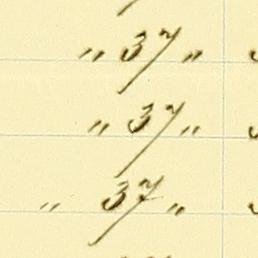 „ 37 „
„ 37 „
„ 37 „